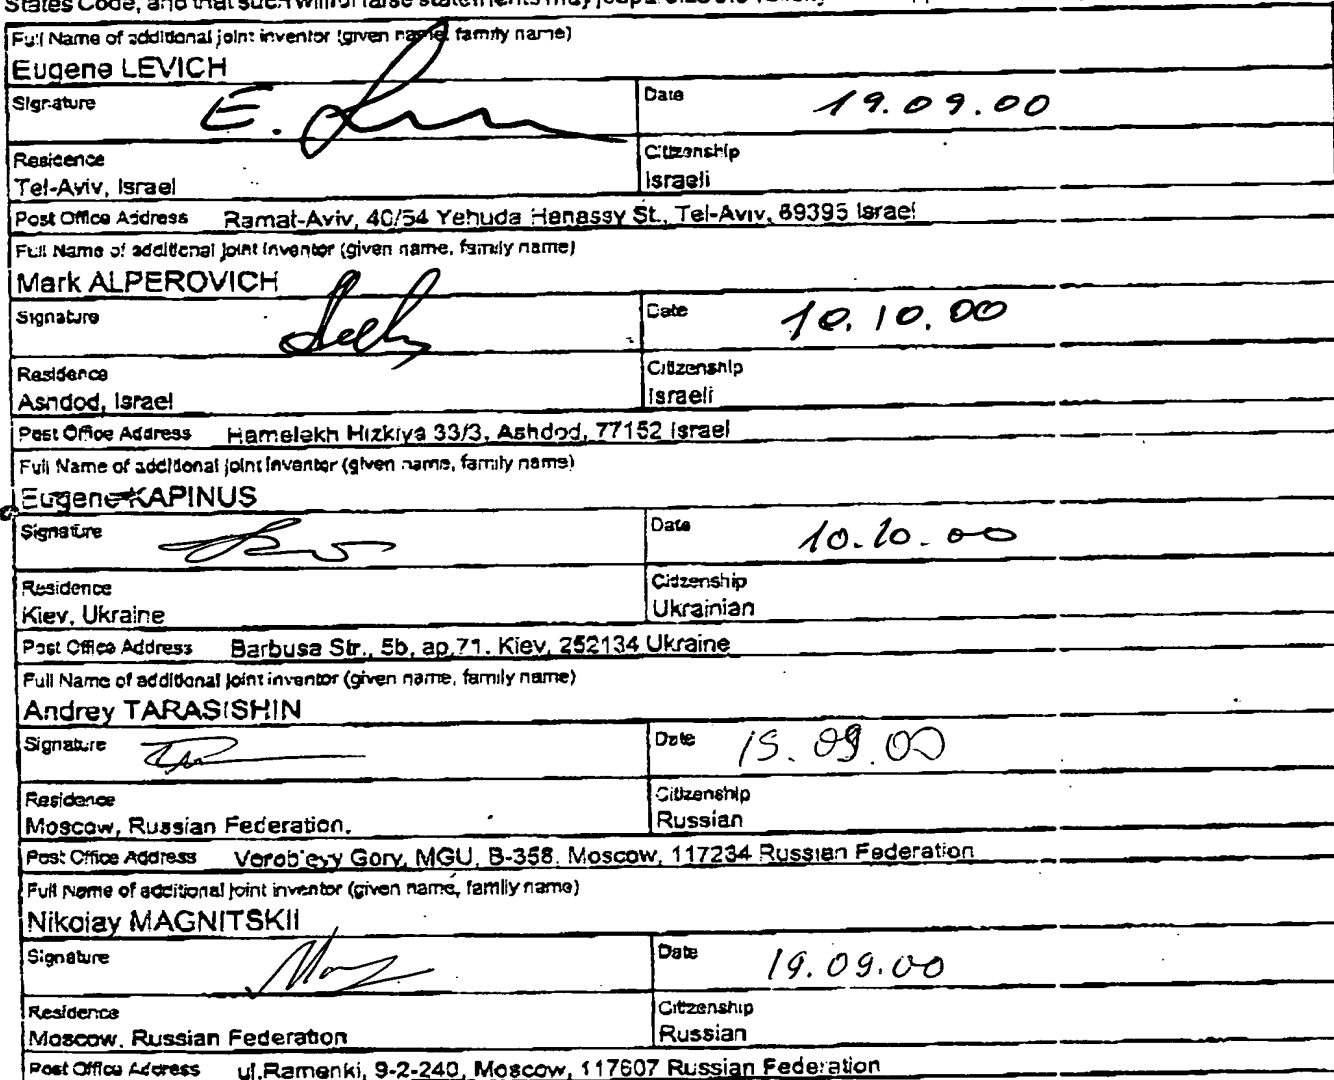 States Code, and that such willful false statements may jeopardize the validity
Full Name of additional joint inventor (given name, family name)
Eugene LEVICH
Signature E. Date 19.09.00
Residence Citizenship
Tel-Aviv, Israel Israeli
Post Office Address Ramat-Aviv, 40/54 Yehuda Hanassy St., Tel-Aviv, 69395 Israel
Full Name of additional joint inventor (given name, family name)
Mark ALPEROVICH
Signature Date 10.10.00
Residence Citizenship
Ashdod, Israel Israeli
Post Office Address Hamelekh Hizkiya 33/3, Ashdod, 77152 Israel
Full Name of additional joint inventor (given name, family name)
Eugene KAPINUS
Signature Date 10.10.00
Residence Citizenship
Kiev, Ukraine Ukrainian
Post Office Address Barbusa Str., 5b, ap.71. Kiev, 252134 Ukraine
Full Name of additional joint inventor (given name, family name)
Andrey TARASISHIN
Signature Date 15.09.00
Residence Citizenship
Moscow, Russian Federation. Russian
Post Office Address Vorob'evy Gory, MGU, B-358, Moscow, 117234 Russian Federation
Full Name of additional joint inventor (given name, family name)
Nikolay MAGNITSKII
Signature Date 19.09.00
Residence Citizenship
Moscow, Russian Federation Russian
Post Office Address ul.Ramenki, 9-2-240, Moscow, 117607 Russian Federation